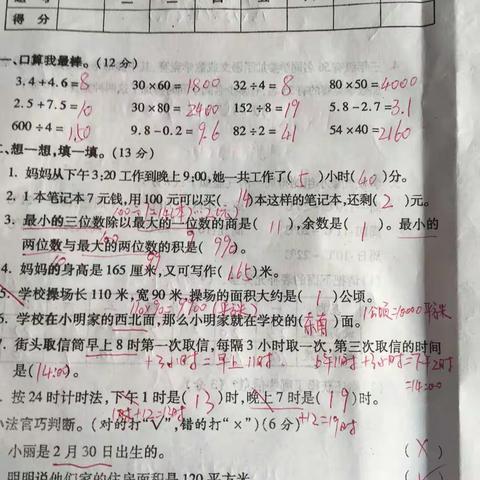 得分
一、口算我最棒。(12分)
3.4+4.6=8 30×60=1800 32÷4=8 80×50=4000
2.5+7.5=10 30×80=2400 152÷8=19 5.8-2.7=3.1
600÷4=150 9.8-0.2=9.6 82÷2=41 54×40=2160
二、想一想,填一填。(13分)
1. 妈妈从下午3:20工作到晚上9:00,她一共工作了(5)小时(40)分。
2. 1本笔记本7元钱,用100元可以买(14)本这样的笔记本,还剩(2)元。
100÷7=14(本)……2(元)
3. 最小的三位数除以最大的一位数的商是(11),余数是(1)。最小的
两位数与最大的两位数的积是(990)。
10 99
4. 妈妈的身高是165厘米,又可写作(1.65)米。
5. 学校操场长110米,宽90米,操场的面积大约是(1)公顷。
110×90=9900(平方米) 1公顷=10000平方米
6. 学校在小明家的西北面,那么小明家就在学校的(东南)面。
7. 街头取信筒早上8时第一次取信,每隔3小时取一次,第三次取信的时间
+3小时=早上11时 上午11时+3小时=下午2时
是(14:00)。 =14:00
按24时计时法,下午1时是(13)时,晚上7时是(19)时。
1时+12=13时 +12=19时
小法官巧判断。(对的打“√”,错的打“×”)(6分)
小丽是2月30日出生的。 (×)
明明说他们家的住房面积是120平方米。